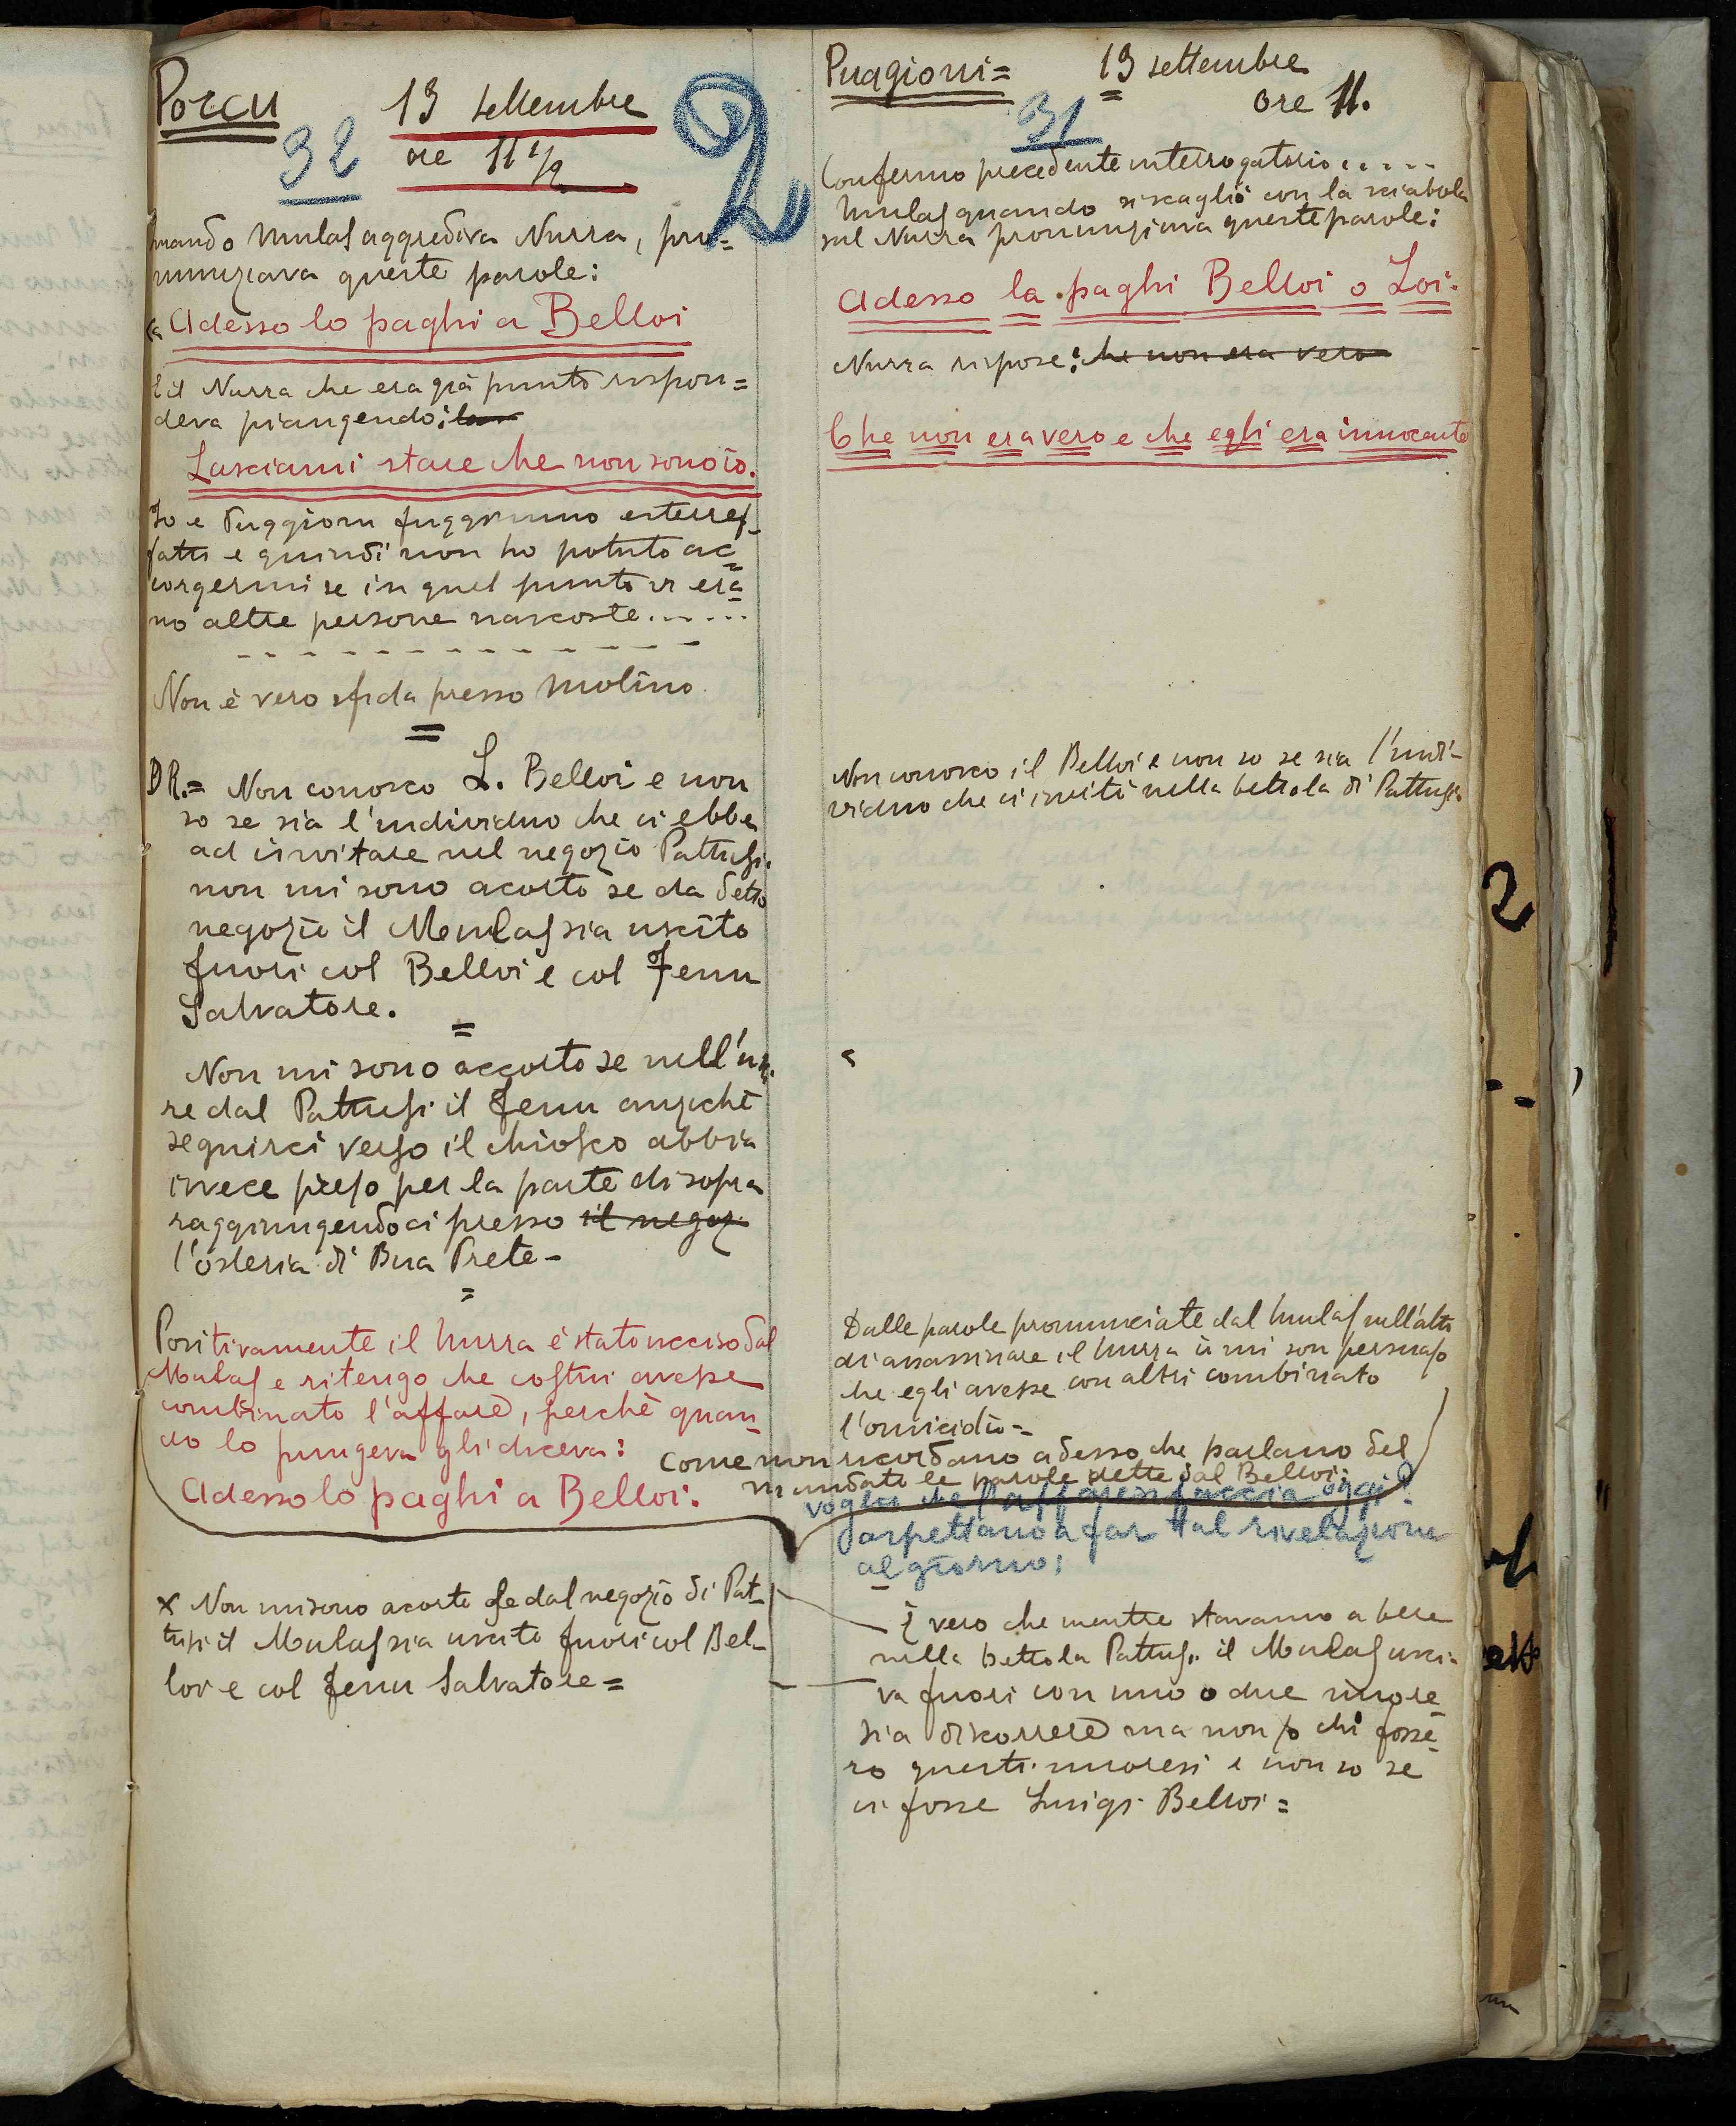 Porcu
13 settembre
32
ore 11 1/2
2
quando Mulas aggrediva Nurra, pro=
nunziava queste parole:
"Adesso lo paghi a Belloi
E il Nurra che era già punto rispon=
deva piangendo: la
Lasciami stare che non sono io.
Io e Puggioni fuggimmo esterref-
fatti e quindi non ho potuto ac=
corgermi se in quel punto vi era=
no altre persone nascoste......
Non è vero sfida presso Molino
=
DR.= Non conosco L. Belloi e non
so se sia l'individuo che ci ebbe
ad invitare nel negozio Pattusi.
non mi sono acorto se da detto
negozio il Mulas sia uscito
fuori col Belloi e col Fenu
Salvatore.
=
Non mi sono accorto se nell'usci
re dal Pattusi il Fenu anzichè
seguirci verso il chiosco abbia
invece preso per la parte di sopra
raggiungendoci presso il negoz.
l'osteria di Bua Prete -
=
Positivamente il Nurra è stato ucciso dal
Mulas e ritengo che costui avesse
combinato l'affare, perchè quan=
do lo pungeva gli diceva:
Adesso lo paghi a Belloi.
x Non mi sono acorto se dal negozio di Pat=
tusi il Mulas sia uscito fuori col Bel=
loi e col Fenu Salvatore =
Puggioni=
13 settembre
31
ore 11.
Confermo precedente interrogatorio.....
Mulas quando si scagliò con la sciabola
sul Nurra pronunziava queste parole:
Adesso la paghi Belloi o Loi.
Nurra rispose: che non era vero
Che non era vero e che egli era innocente
Non conosco il Belloi e non so se sia l'indi-
viduo che ci invitò nella bettola di Pattusi.
Dalle parole pronunciate dal Mulas nell'atto
di assassinare il Nurra mi son persuaso
che egli avesse con altri combinato
l'omicidio =
come non ricordano adesso che parlano del
mandato le parole dette dal Belloi:
voglio che l'affare si faccia oggi?
aspettano a far tal rivelazione
al giorno;
È vero che mentre stavamo a bere
nella bettola Pattusi. il Mulas usci=
va fuori con uno o due nuore=
si a discorrere ma non so chi fosse=
ro questi nuoresi e non so se
vi fosse Luigi Belloi =
2